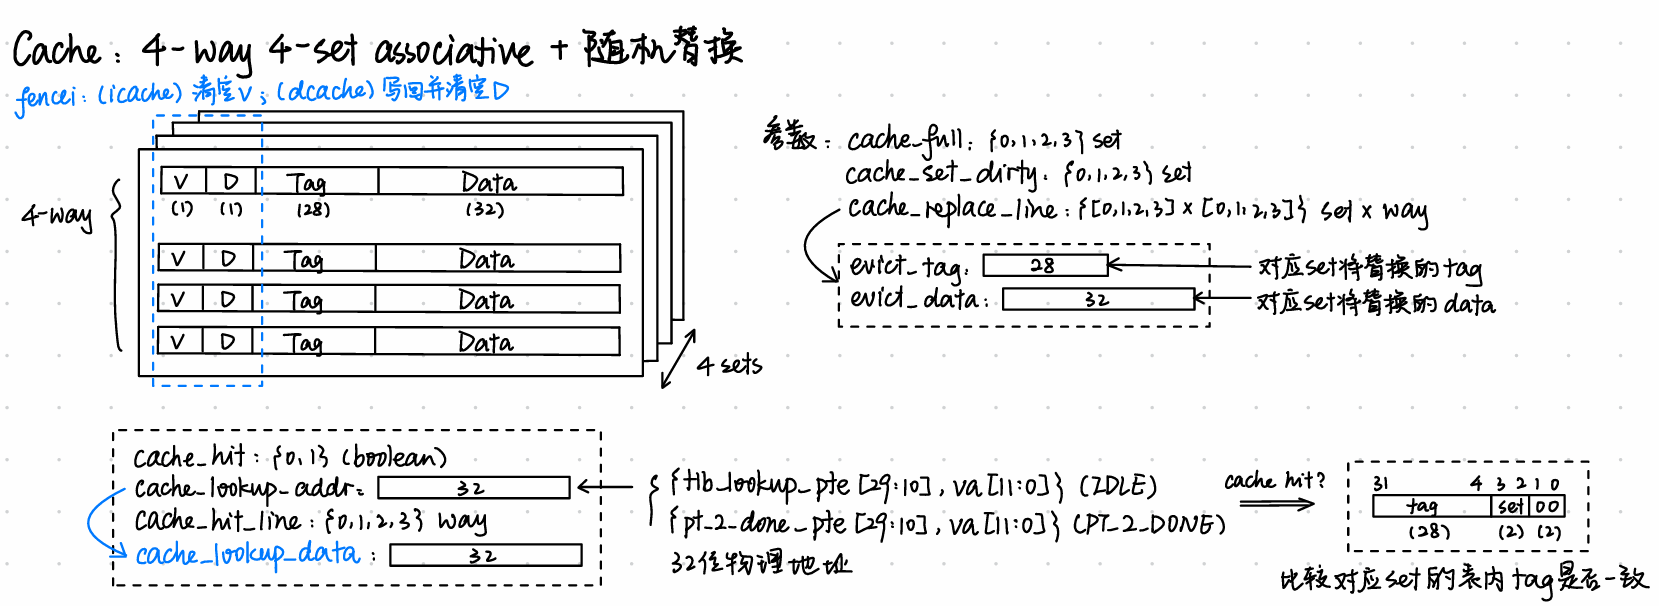 Cache: 4-way 4-set associative + 随机替换
fencei: (icache) 清空V; (dcache) 写回并清空D
4-way
V D Tag Data
(1) (1) (28) (32)
V D Tag Data
V D Tag Data
V D Tag Data
4 sets
参数: cache_full: {0,1,2,3} set
cache_set_dirty: {0,1,2,3} set
cache_replace_line: {[0,1,2,3] × [0,1,2,3]} set × way
evict_tag: 28 对应set将替换的tag
evict_data: 32 对应set将替换的data
cache_hit: {0,1} (boolean)
cache_lookup_addr: 32
cache_hit_line: {0,1,2,3} way
cache_lookup_data: 32
{tlb_lookup_pte[29:10], va[11:0]} (IDLE)
{pt_2_done_pte[29:10], va[11:0]} (PT_2_DONE)
32位物理地址
cache hit?
31 4 3 2 1 0
tag set 00
(28) (2) (2)
比较对应set的表内tag是否一致